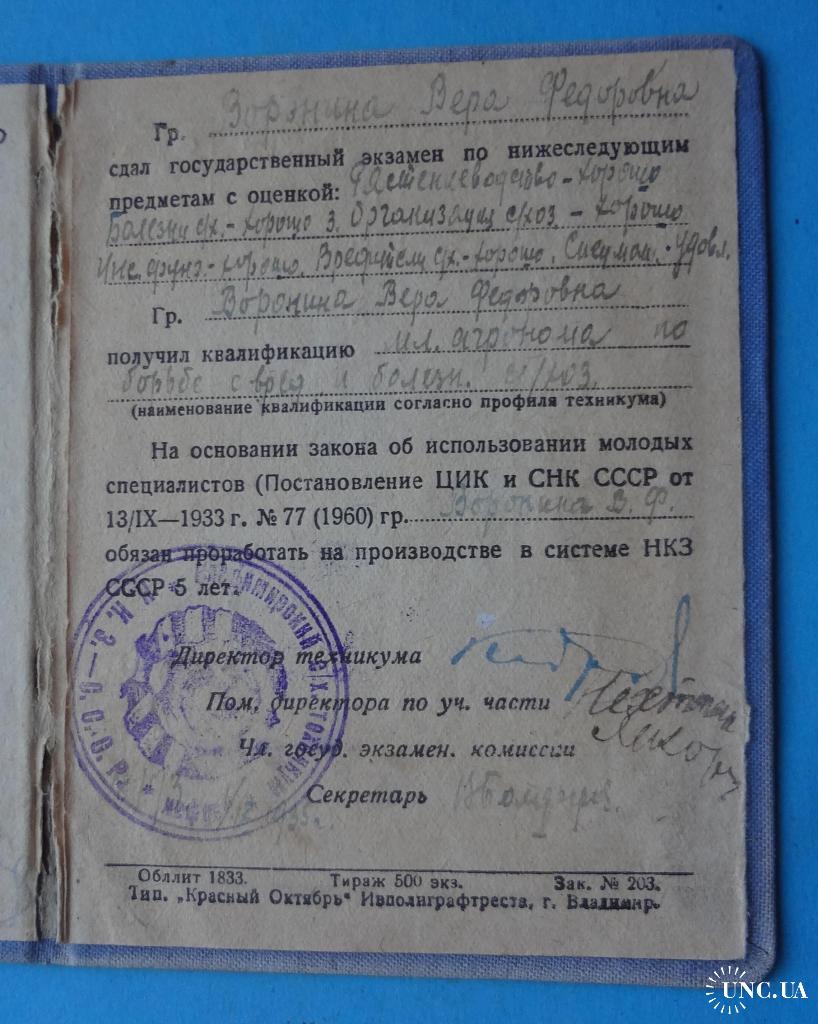 Гр. Воронина Вера Федоровна
сдал государственный экзамен по нижеследующим
предметам с оценкой: Растениеводство - хорошо
Болезни с/х. - хорошо 3. Организация с/хоз - хорошо
хорошо. Вредители с/х. - хорошо. Удовл.
Гр. Воронина Вера Федоровна
получил квалификацию мл. агронома по
борьбе с вред и болезн. с/хоз.
(наименование квалификации согласно профиля техникума)
На основании закона об использовании молодых
специалистов (Постановление ЦИК и СНК СССР от
13/IX—1933 г. № 77 (1960) гр. Воронина В. Ф.
обязан проработать на производстве в системе НКЗ
СССР 5 лет.
Директор техникума
Пом. директора по уч. части
Чл. госуд. экзамен. комиссии
Секретарь
Н.К.З. — С.С.С.Р. Владимирский с/х
Обллит 1833. Тираж 500 экз. Зак. № 203.
Тип. „Красный Октябрь" Ивполиграфтреста, г. Владимир.
UNC.UA